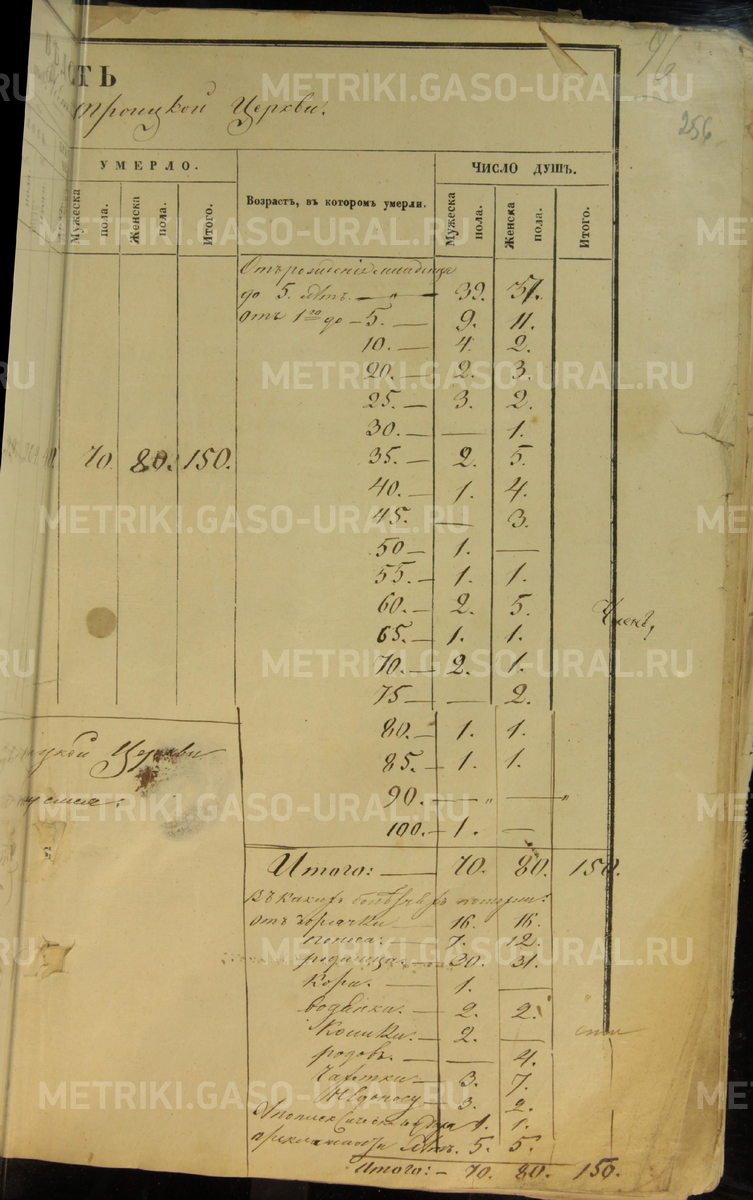 96
256
ТЬ
Троицкой Церкви.
УМЕРЛО.
Мужеска пола.
Женска пола.
Итого.
Возрастъ, въ которомъ умерли.
ЧИСЛО ДУШЪ.
Мужеска пола.
Женска пола.
Итого.
70. 80. 150.
Отъ рожденія младенцъ
до 5. лѣтъ. — „ — 39. 37.
отъ 1го до — 5. — 9. 11.
10. — 4. 2.
20. — 2. 3.
25. — 3. 2.
30. — — 1.
35. — 2. 5.
40. — 1. 4.
45. — 3.
50 — 1. —
55. — 1. 1.
60. — 2. 5.
65. — 1. 1.
70. — 2. 1.
75 — — 2.
80. — 1. 1.
85. — 1. 1.
90. — — „ — „
100. — 1. —
Членъ,
цкой Церкви
Итого: — 70. 80. 150.
Въ какихъ болѣзняхъ померли:
отъ горячки — 16. 16.
поноса. — 7. 12.
родимца. — 30. 31.
Кори. — 1. —
водянки. — 2. 2.
— 2. —
родовъ. — — 4.
Чахотки — 3. 7.
— 3. 2.
1. 1.
лѣтъ. 5. 5.
Итого: — 70. 80. 150.
METRIKI.GASO-URAL.RU